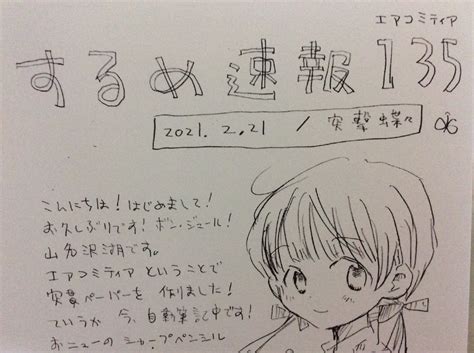 エアコミティア
するめ速報135
2021.2.21 / 突撃蝶々
こんにちは！はじめまして！
お久しぶりです！ボン・ジュール！
山名沢湖です。
エアコミティア ということで
突貫ペーパーを 作りました！
ていうか 今、自動筆記中です！
おニューの シャープペンシル